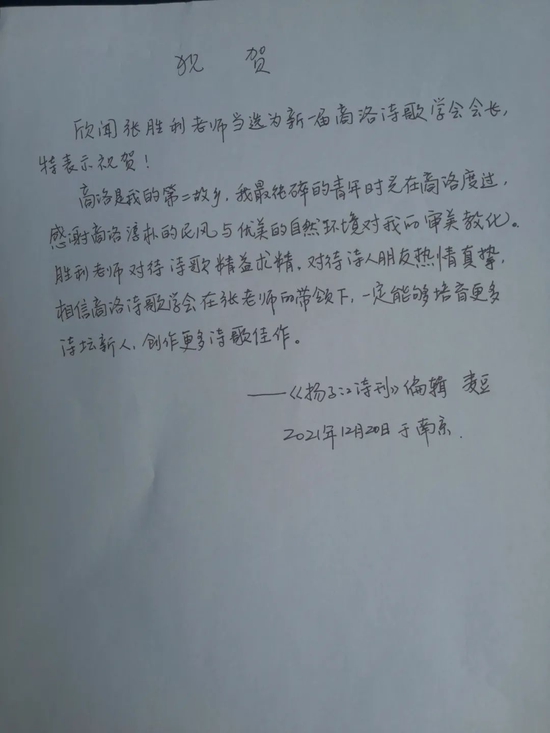 祝 贺
欣闻张胜利老师当选为新一届商洛诗歌学会会长，
特表示祝贺！
商洛是我的第二故乡，我最纯碎的青年时光在商洛度过，
感谢商洛淳朴的民风与优美的自然环境对我的审美教化。
胜利老师对待诗歌精益求精，对待诗人朋友热情真挚，
相信商洛诗歌学会在张老师的带领下，一定能够培育更多
诗坛新人，创作更多诗歌佳作。
——《扬子江诗刊》编辑 麦豆
2021年12月20日于南京.